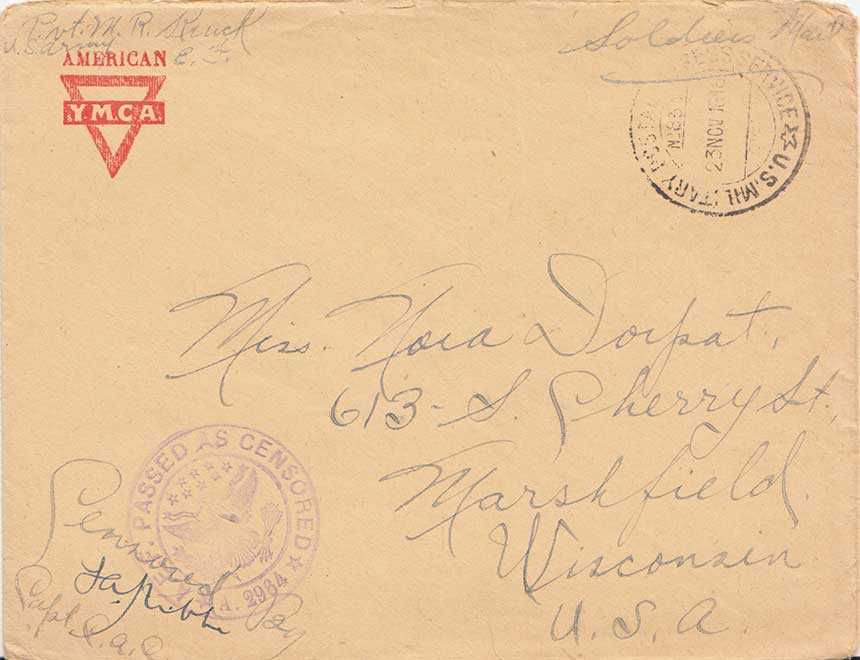 Pvt. M. R. Kruck
U.S. Army E. F.
AMERICAN
Y.M.C.A.
Soldiers Mail
MILITARY POSTAL EXPRESS SERVICE ★ U.S.
No. 83
23 NOV 1918
Miss. Nora Dorpat,
613 - S. Cherry St.,
Marshfield.
Wisconsin
U. S. A.
A.E.F. PASSED AS CENSORED ★
A. 2964
Censored
By
Capt. C.a.C